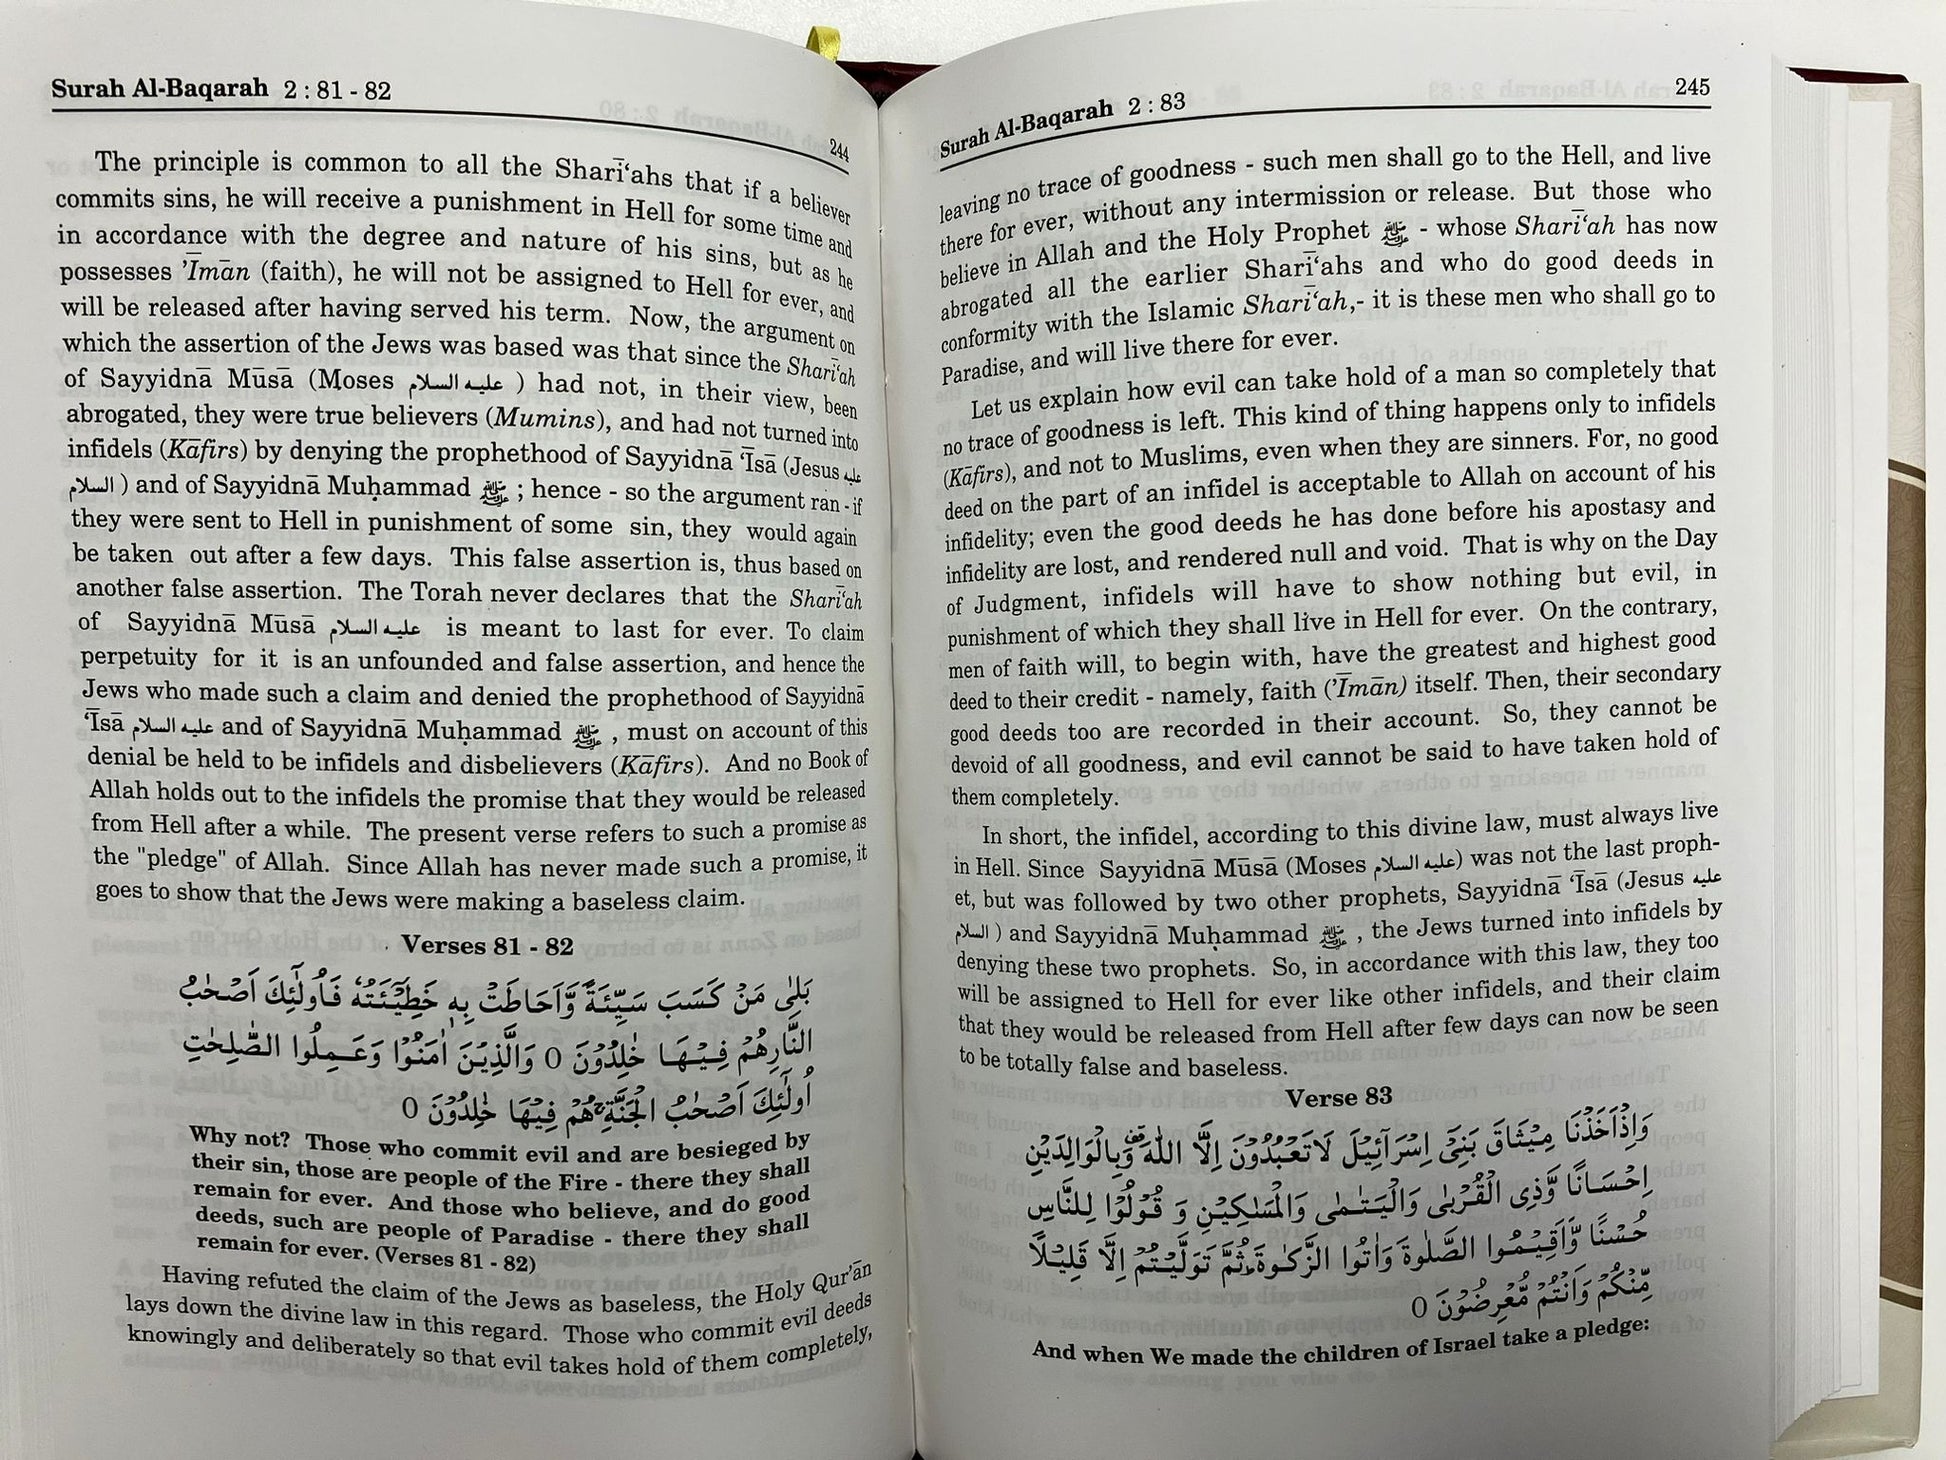 Surah Al-Baqarah 2 : 81 - 82
244
The principle is common to all the Sharī‘ahs that if a believer
commits sins, he will receive a punishment in Hell for some time and
in accordance with the degree and nature of his sins, but as he
possesses ’Īmān (faith), he will not be assigned to Hell for ever, and
will be released after having served his term. Now, the argument on
which the assertion of the Jews was based was that since the Sharī‘ah
of Sayyidnā Mūsā (Moses عليه السلام ) had not, in their view, been
abrogated, they were true believers (Mumins), and had not turned into
infidels (Kāfirs) by denying the prophethood of Sayyidnā ‘Īsā (Jesus عليه
السلام ) and of Sayyidnā Muḥammad ﷺ ; hence - so the argument ran - if
they were sent to Hell in punishment of some sin, they would again
be taken out after a few days. This false assertion is, thus based on
another false assertion. The Torah never declares that the Sharī‘ah
of Sayyidnā Mūsā عليه السلام is meant to last for ever. To claim
perpetuity for it is an unfounded and false assertion, and hence the
Jews who made such a claim and denied the prophethood of Sayyidnā
‘Īsā عليه السلام and of Sayyidnā Muḥammad ﷺ , must on account of this
denial be held to be infidels and disbelievers (Kāfirs). And no Book of
Allah holds out to the infidels the promise that they would be released
from Hell after a while. The present verse refers to such a promise as
the "pledge" of Allah. Since Allah has never made such a promise, it
goes to show that the Jews were making a baseless claim.
Verses 81 - 82
بَلٰى مَنْ كَسَبَ سَيِّئَةً وَّاَحَاطَتْ بِهٖ خَطِيْٓـَٔتُهٗ فَاُولٰٓئِكَ اَصْحٰبُ
النَّارِهُمْ فِيْهَا خٰلِدُوْنَ O وَالَّذِيْنَ اٰمَنُوْا وَعَمِلُوا الصّٰلِحٰتِ
اُولٰٓئِكَ اَصْحٰبُ الْجَنَّةِ ۚ هُمْ فِيْهَا خٰلِدُوْنَ O
Why not? Those who commit evil and are besieged by
their sin, those are people of the Fire - there they shall
remain for ever. And those who believe, and do good
deeds, such are people of Paradise - there they shall
remain for ever. (Verses 81 - 82)
Having refuted the claim of the Jews as baseless, the Holy Qur’ān
lays down the divine law in this regard. Those who commit evil deeds
knowingly and deliberately so that evil takes hold of them completely,
Surah Al-Baqarah 2 : 83
245
leaving no trace of goodness - such men shall go to the Hell, and live
there for ever, without any intermission or release. But those who
believe in Allah and the Holy Prophet ﷺ - whose Sharī‘ah has now
abrogated all the earlier Sharī‘ahs and who do good deeds in
conformity with the Islamic Sharī‘ah,- it is these men who shall go to
Paradise, and will live there for ever.
Let us explain how evil can take hold of a man so completely that
no trace of goodness is left. This kind of thing happens only to infidels
(Kāfirs), and not to Muslims, even when they are sinners. For, no good
deed on the part of an infidel is acceptable to Allah on account of his
infidelity; even the good deeds he has done before his apostasy and
infidelity are lost, and rendered null and void. That is why on the Day
of Judgment, infidels will have to show nothing but evil, in
punishment of which they shall live in Hell for ever. On the contrary,
men of faith will, to begin with, have the greatest and highest good
deed to their credit - namely, faith (’Īmān) itself. Then, their secondary
good deeds too are recorded in their account. So, they cannot be
devoid of all goodness, and evil cannot be said to have taken hold of
them completely.
In short, the infidel, according to this divine law, must always live
in Hell. Since Sayyidnā Mūsā (Moses عليه السلام) was not the last proph-
et, but was followed by two other prophets, Sayyidnā ‘Īsā (Jesus عليه
السلام ) and Sayyidnā Muḥammad ﷺ , the Jews turned into infidels by
denying these two prophets. So, in accordance with this law, they too
will be assigned to Hell for ever like other infidels, and their claim
that they would be released from Hell after few days can now be seen
to be totally false and baseless.
Verse 83
وَاِذْاَخَذْنَا مِيْثَاقَ بَنِيْٓ اِسْرَآئِيْلَ لَاتَعْبُدُوْنَ اِلَّا اللّٰهَ ۫ وَبِالْوَالِدَيْنِ
اِحْسَانًا وَّذِى الْقُرْبٰى وَالْيَتٰمٰى وَالْمَسٰكِيْنِ وَ قُوْلُوْا لِلنَّاسِ
حُسْنًا وَّاَقِيْمُوا الصَّلٰوةَ وَاٰتُوا الزَّكٰوةَ ؕ ثُمَّ تَوَلَّيْتُمْ اِلَّا قَلِيْلًا
مِّنْكُمْ وَاَنْتُمْ مُّعْرِضُوْنَ O
And when We made the children of Israel take a pledge: